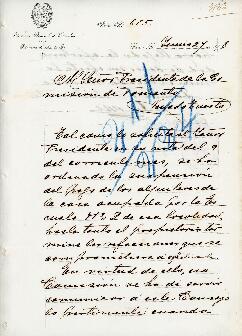 655
Al Señor Presidente de la Co-
misión de Fomento
Tal como lo solicita el Señor
Presidente en su nota del 9
del corriente mes, se ha
ordenado la suspensión
del pago de los alquileres de
la casa ocupada por la Es-
cuela Nº 2 de esa localidad,
hasta tanto el propietario ter-
mine las refacciones que se
comprometió a efectuar.
En virtud de ello, esa
Comisión se ha de servir
comunicar a este Consejo
lo pertinente, cuando